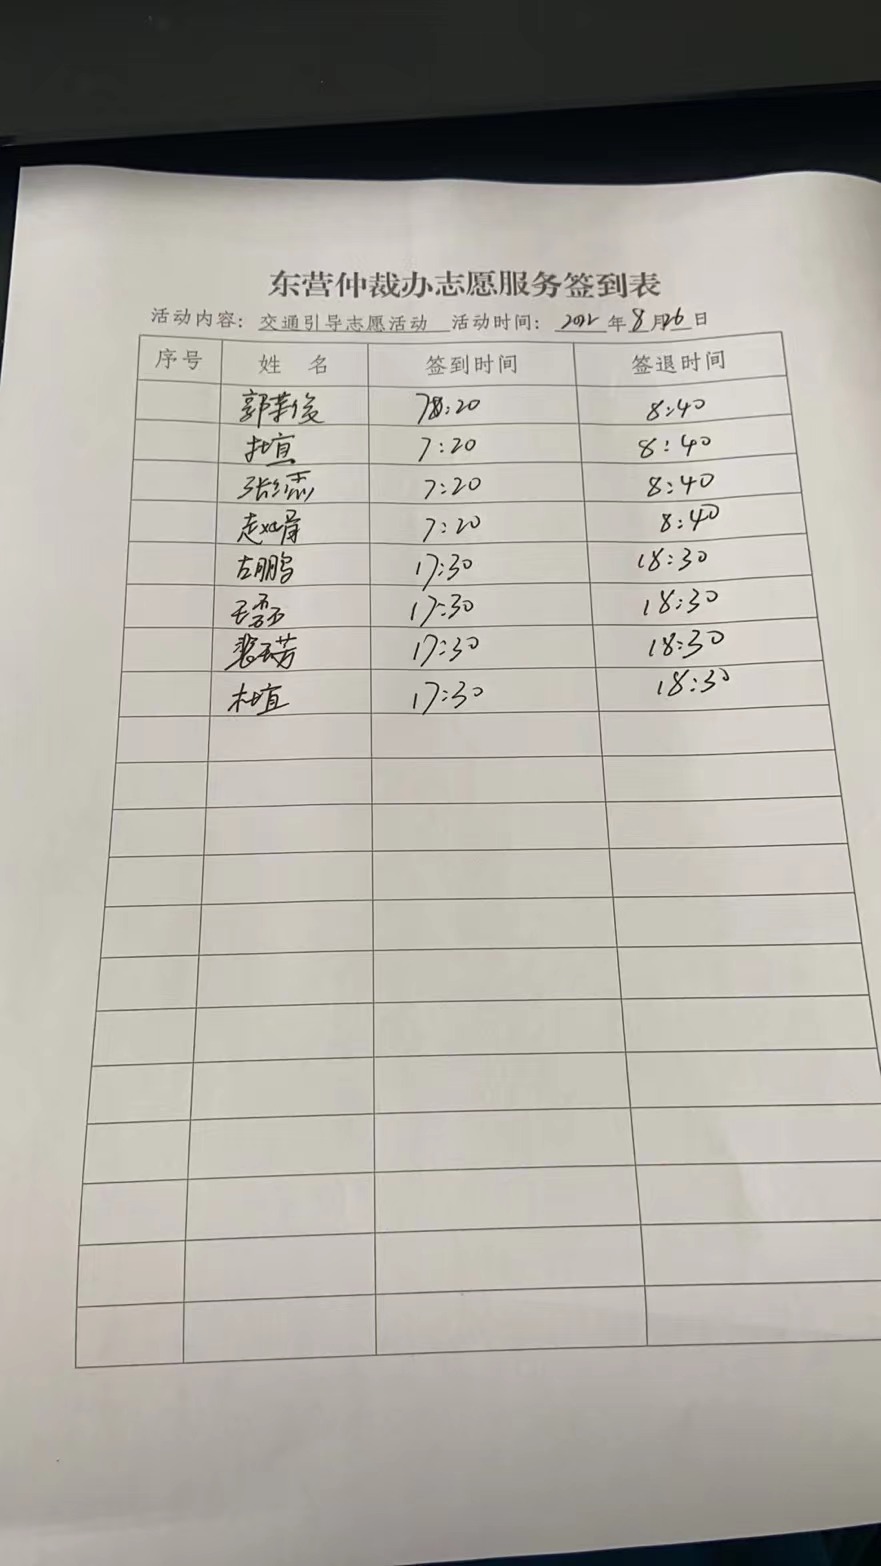 东营仲裁办志愿服务签到表
活动内容: 交通引导志愿活动 活动时间: 2022年8月26日
序号 姓 名 签到时间 签退时间
郭荣俊 7:20 8:40
杜宜 7:20 8:40
张红燕 7:20 8:40
7:20 8:40
左鹏 17:30 18:30
王磊 17:30 18:30
裴玉芳 17:30 18:30
杜宜 17:30 18:30